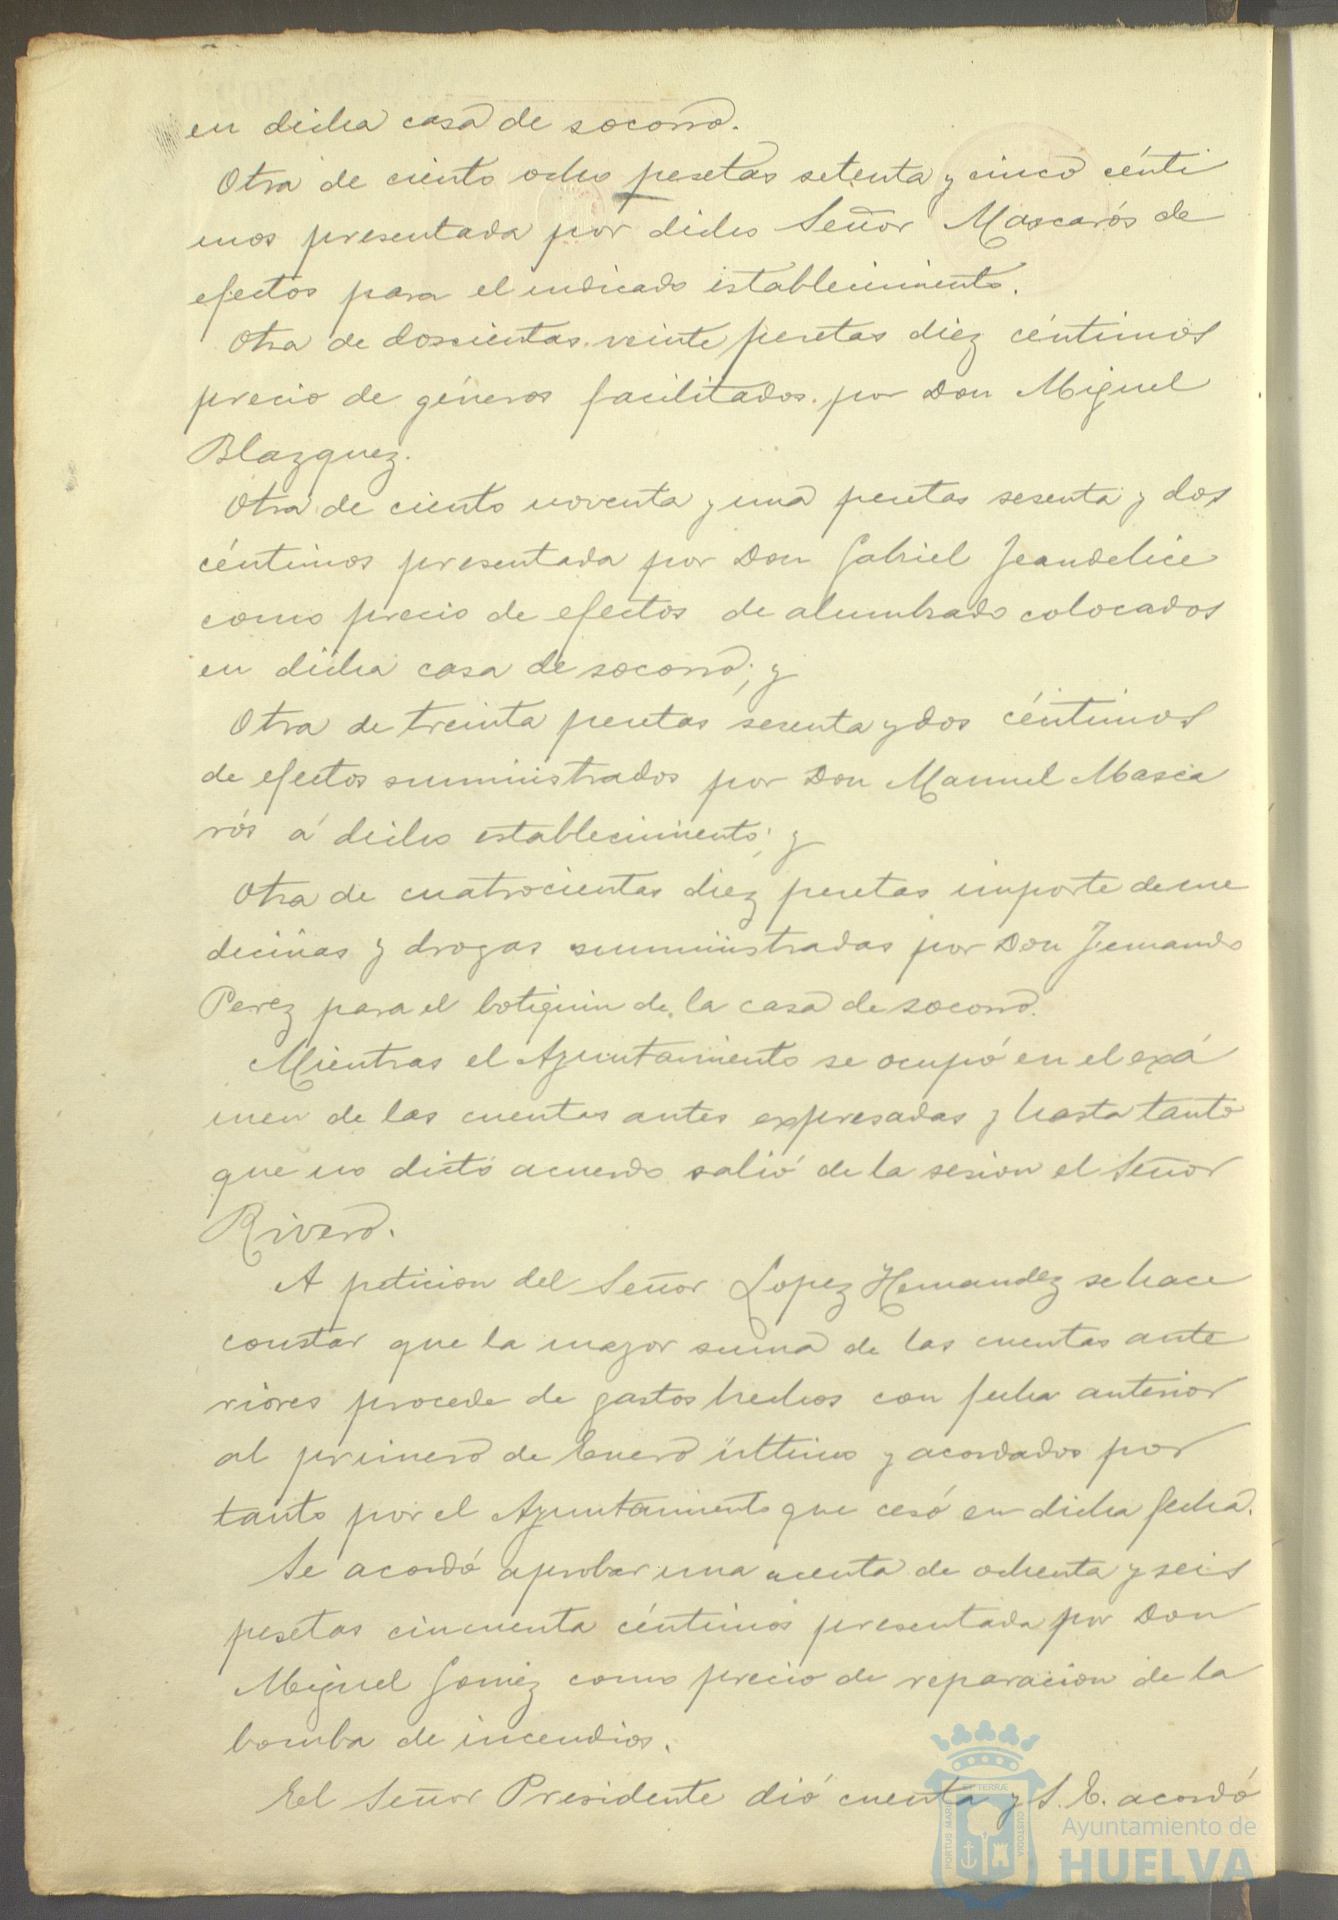 en dicha casa de socorro.
Otra de ciento ocho pesetas setenta y cinco cénti
mos presentada por dicho Señor Mascarós de
efectos para el indicado establecimiento.
Otra de doscientas veinte pesetas diez céntimos
precio de géneros facilitados por Don Miguel
Blazquez.
Otra de ciento noventa y una pesetas sesenta y dos
céntimos presentada por Don Gabriel Jeandelice
como precio de efectos de alumbrado colocados
en dicha casa de socorro; y
Otra de treinta pesetas sesenta y dos céntimos
de efectos suministrados por Don Manuel Masca
rós á dicho establecimiento; y
Otra de cuatrocientas diez pesetas importe de me
decinas y drogas suministradas por Don Fernando
Perez para el botiquin de la casa de socorro.
Mientras el Ayuntamiento se ocupó en el exá
men de las cuentas antes expresadas y hasta tanto
que no dictó acuerdo salió de la sesion el Señor
Rivero.
A peticion del Señor Lopez Hernandez se hace
constar que la mayor suma de las cuentas ante
riores procede de gastos hechos con fecha anterior
al primero de Enero último y acordados por
tanto por el Ayuntamiento que cesó en dicha fecha.
Se acordó aprobar una cuenta de ochenta y seis
pesetas cincuenta céntimos presentada por Don
Miguel Gomez como precio de reparacion de la
bomba de incendios.
El Señor Presidente dió cuenta y S. E. acordó
PORTUS MARIS ET TERRÆ CUSTODIA
Ayuntamiento de
HUELVA